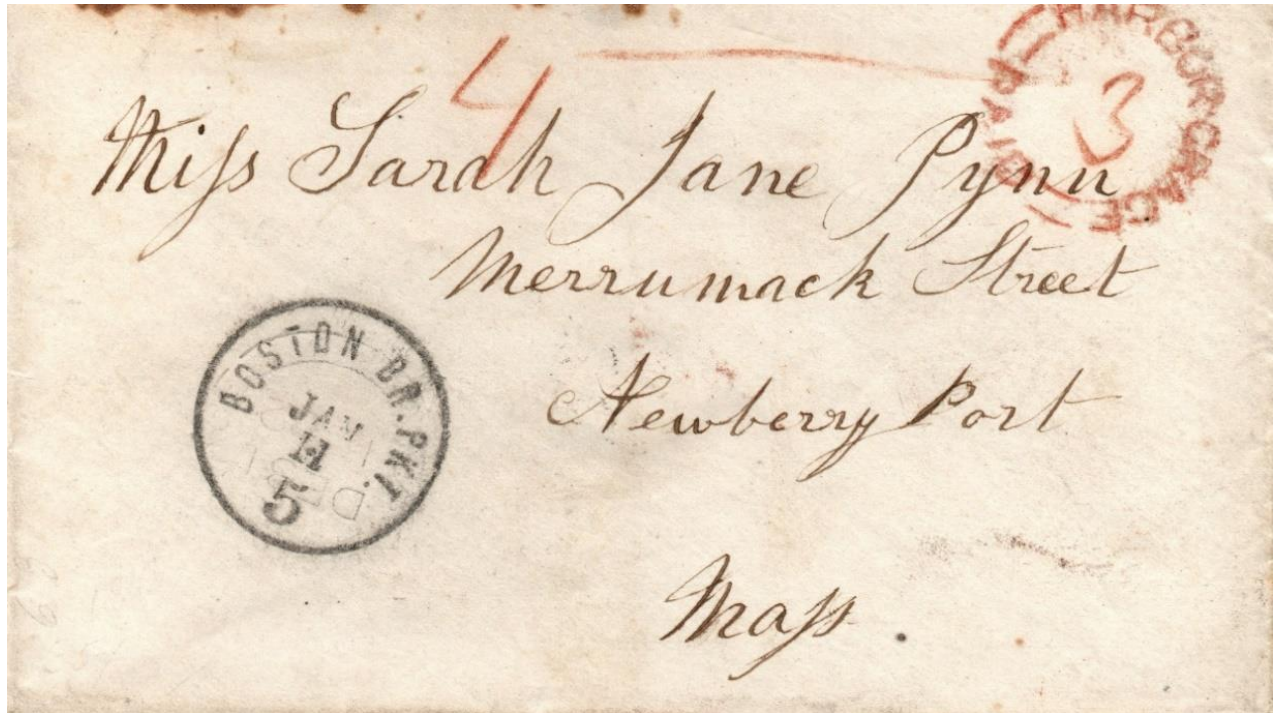 4
HARBOUR GRACE
PAID
3
Miss Sarah Jane Pynn
Merrumack Street
Newberry Port
Mass.
BOSTON BR. PKT.
JAN
11
5